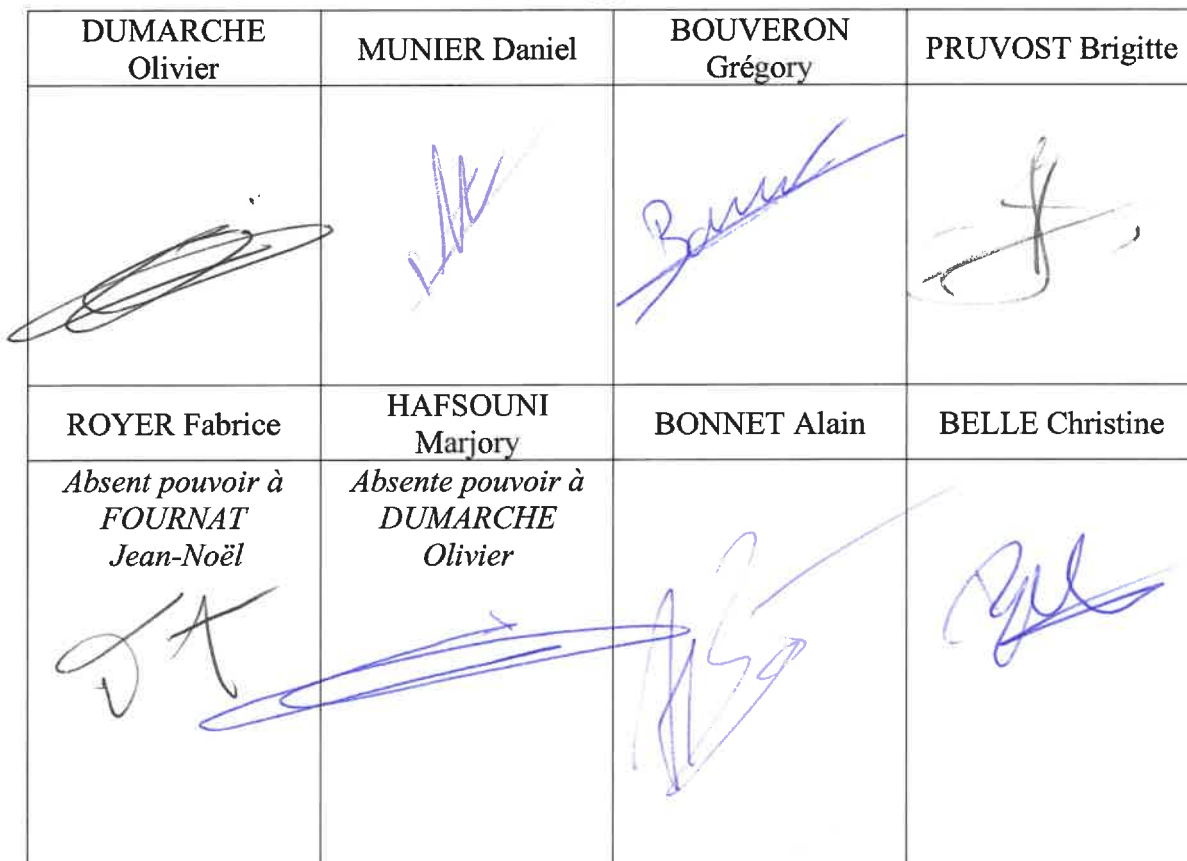 DUMARCHE
Olivier
MUNIER Daniel
BOUVERON
Grégory
PRUVOST Brigitte
ROYER Fabrice
HAFSOUNI
Marjory
BONNET Alain
BELLE Christine
Absent pouvoir à
FOURNAT
Jean-Noël
Absente pouvoir à
DUMARCHE
Olivier